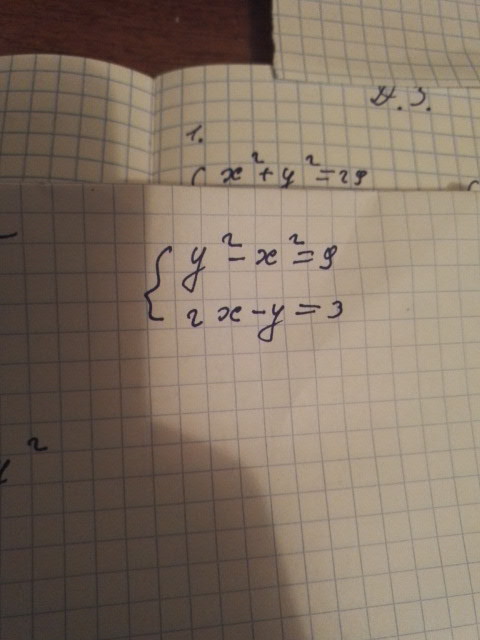 Д.З.
1.
x²+y²=29
{ y²-x²=9
2x-y=3